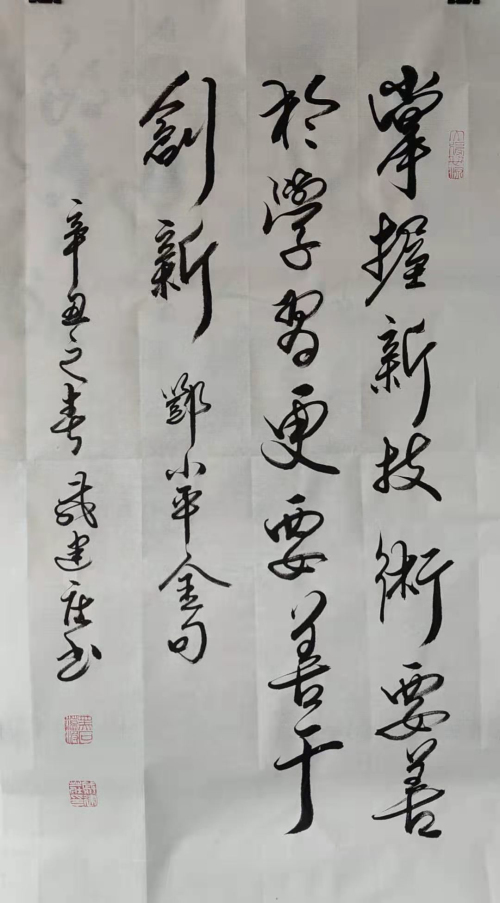 掌握新技術要善
於學習更要善于
創新 鄧小平金句
辛丑之春 戴建庄书